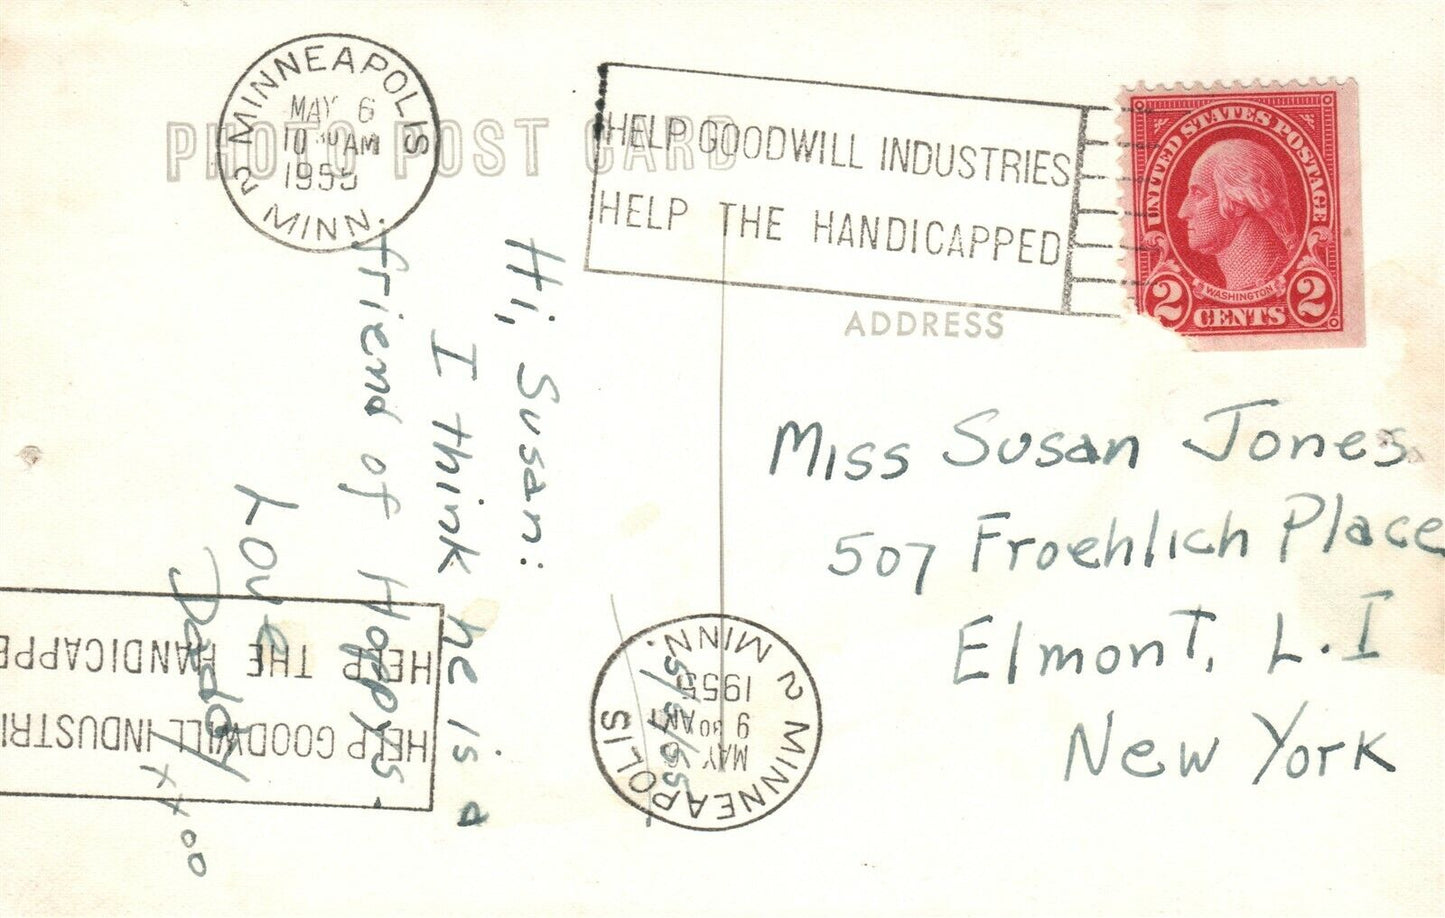 PHOTO POST CARD
MINNEAPOLIS
MAY 6
10 30 AM
1955
2 MINN.
HELP GOODWILL INDUSTRIES
HELP THE HANDICAPPED
UNITED STATES POSTAGE
WASHINGTON
2 CENTS 2
ADDRESS
Miss Susan Jones
507 Froehlich Place
Elmont, L.I
New York
Hi, Susan:
I think he is a
friend of Hoppy's.
Love
Daddy
xxoo
5/5/55
MINNEAPOLIS
MAY 6
9 30 AM
1955
2 MINN.
HELP GOODWILL INDUSTRI
HELP THE HANDICAPPE